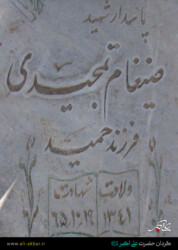 پاسدار شهید
ضیغام تمجیدی
فرزند حمید
ولادت شهادت
۱۳۴۱ ۶۵،۱۰،۱۹
www.ali-akbar.ir
گردان حضرت علی اکبر